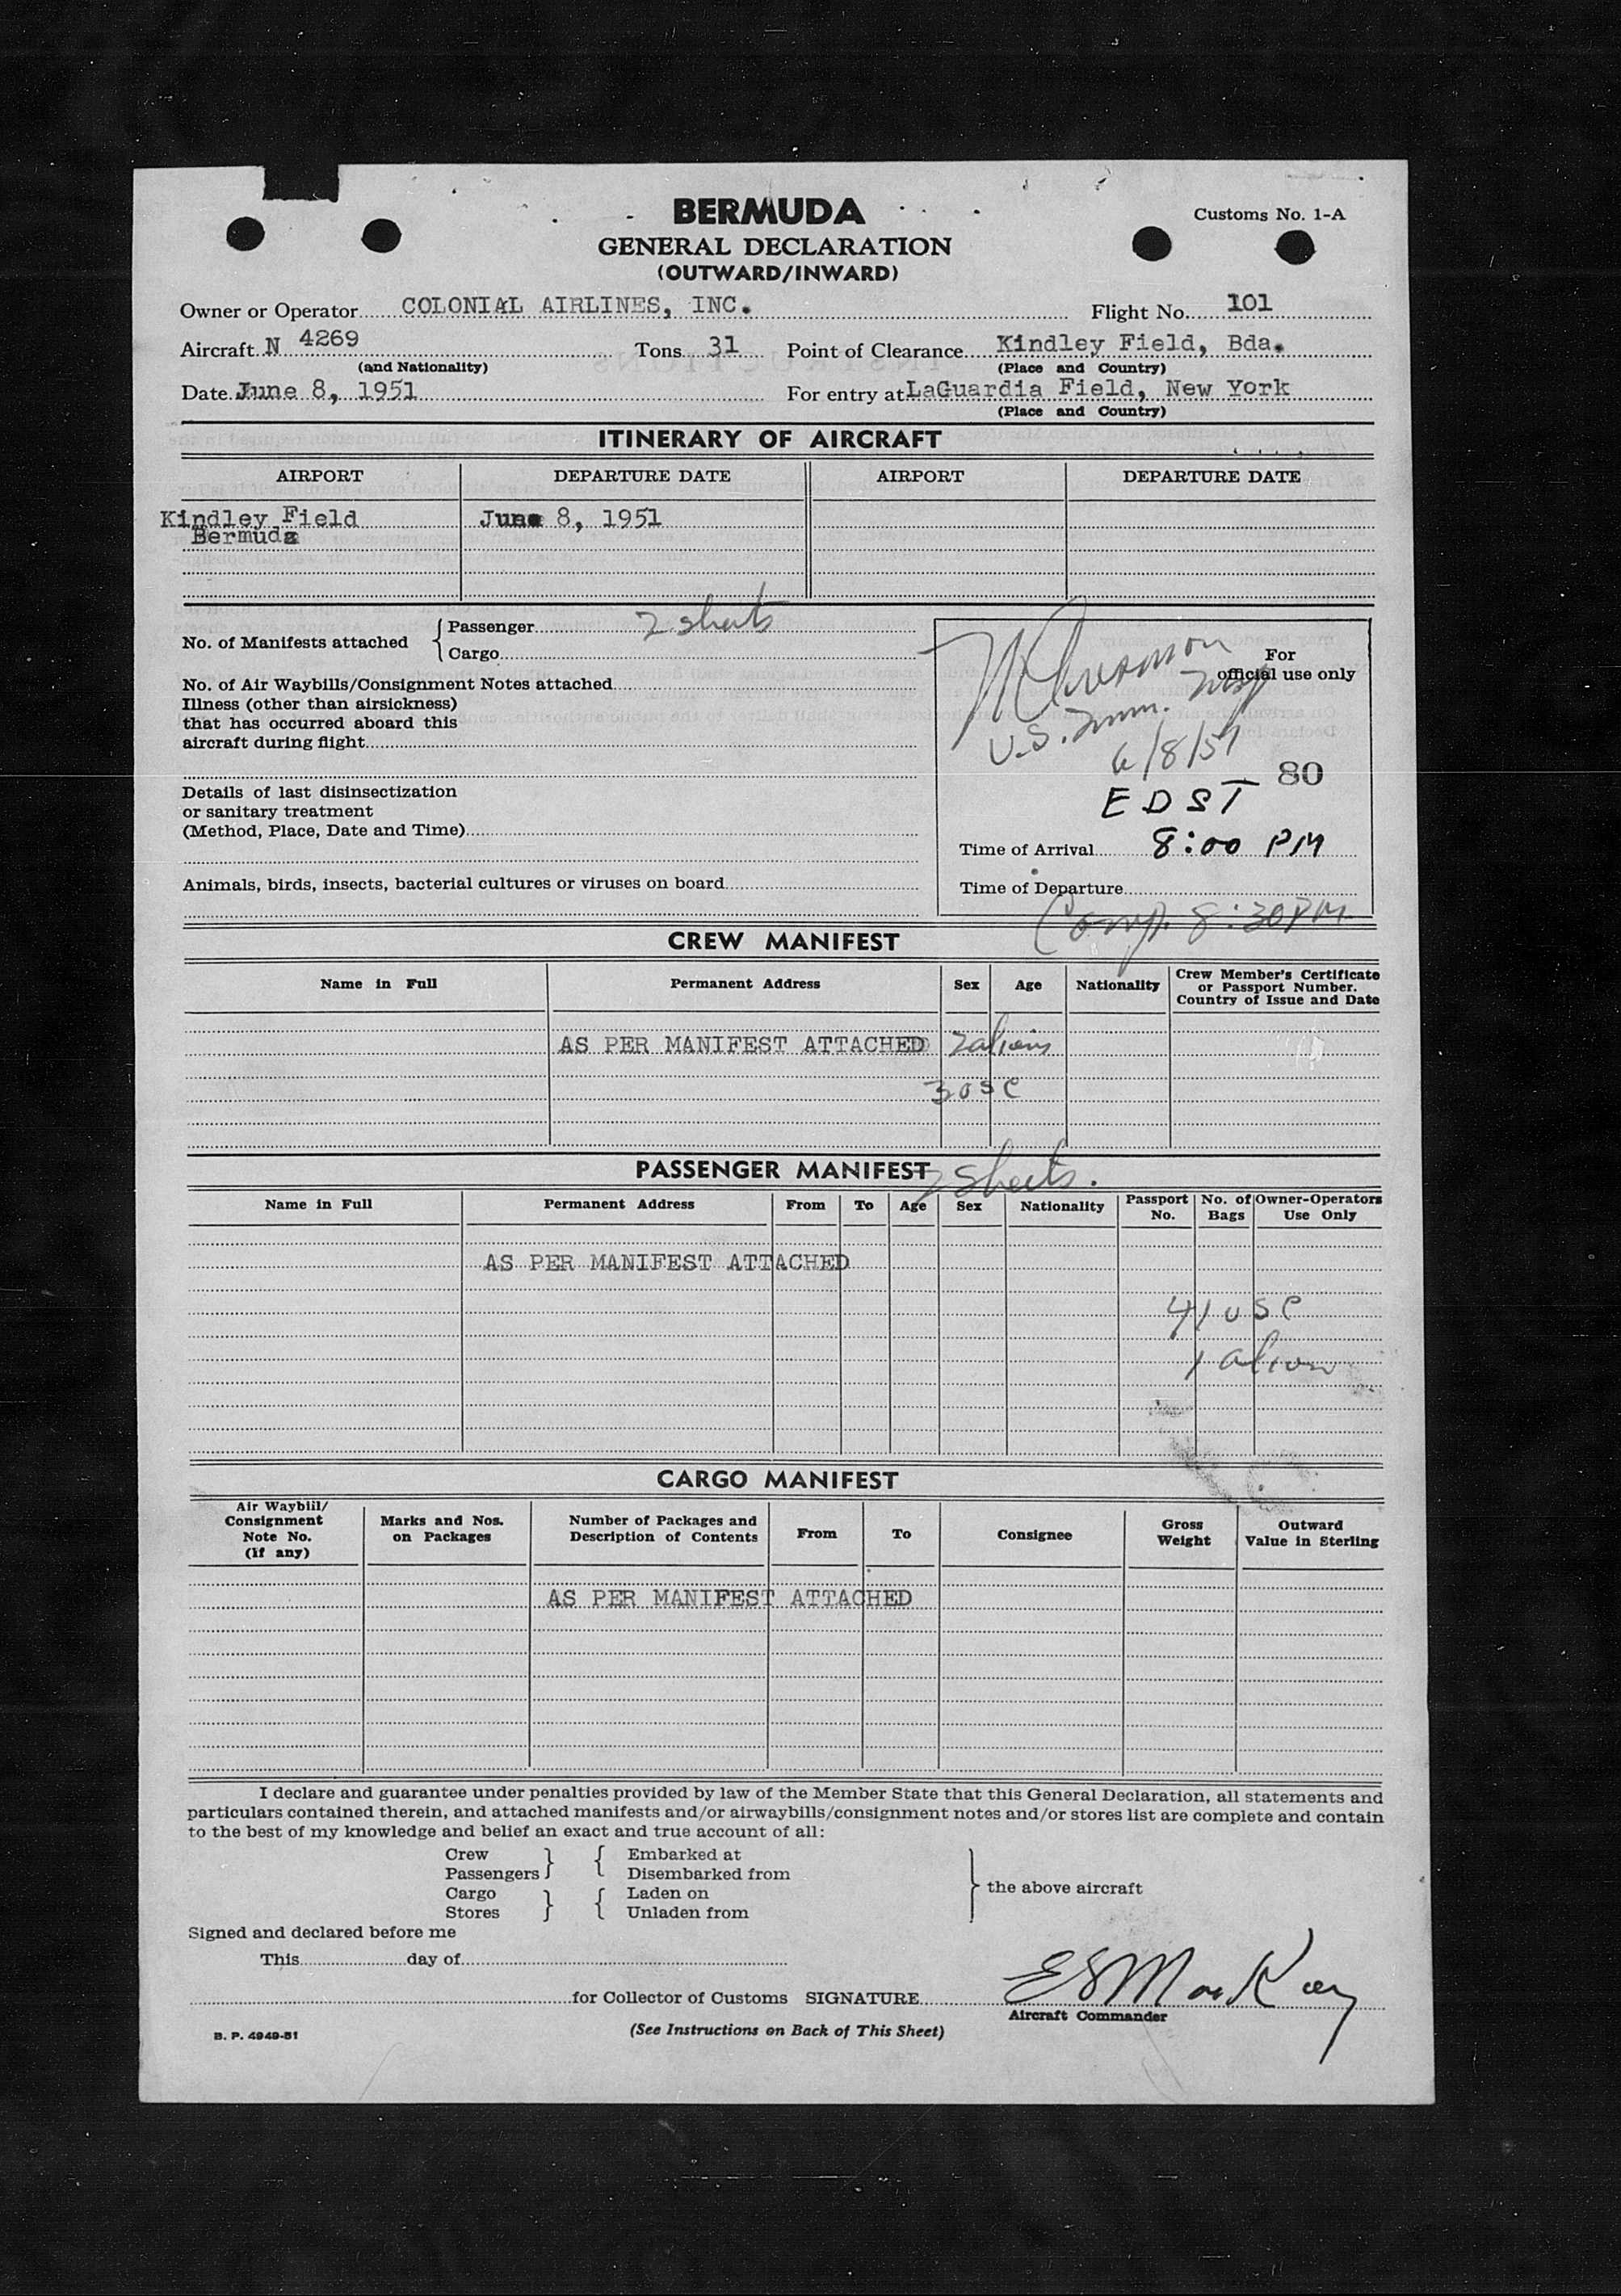 BERMUDA
Customs No. 1-A
GENERAL DECLARATION
(OUTWARD/INWARD)
Owner or Operator COLONIAL AIRLINES, INC. Flight No. 101
Aircraft N 4269 Tons 31 Point of Clearance Kindley Field, Bda.
(and Nationality) (Place and Country)
Date June 8, 1951 For entry at LaGuardia Field, New York
(Place and Country)
ITINERARY OF AIRCRAFT
AIRPORT DEPARTURE DATE AIRPORT DEPARTURE DATE
Kindley Field June 8, 1951
Bermuda
No. of Manifests attached { Passenger 2 sheets
Cargo
No. of Air Waybills/Consignment Notes attached
Illness (other than airsickness)
that has occurred aboard this
aircraft during flight
Details of last disinsectization
or sanitary treatment
(Method, Place, Date and Time)
Animals, birds, insects, bacterial cultures or viruses on board
For
official use only
Insp
U.S. Imm.
6/8/51
80
EDST
Time of Arrival 8:00 PM
Time of Departure
Comp. 8:30 PM
CREW MANIFEST
Name in Full Permanent Address Sex Age Nationality Crew Member's Certificate
or Passport Number.
Country of Issue and Date
AS PER MANIFEST ATTACHED 2 aliens
3 USC
PASSENGER MANIFEST 2 sheets.
Name in Full Permanent Address From To Age Sex Nationality Passport No. No. of Bags Owner-Operators Use Only
AS PER MANIFEST ATTACHED
41 USC
1 alien
CARGO MANIFEST
Air Waybill/
Consignment
Note No.
(if any)
Marks and Nos.
on Packages
Number of Packages and
Description of Contents
From To Consignee
Gross
Weight
Outward
Value in Sterling
AS PER MANIFEST ATTACHED
I declare and guarantee under penalties provided by law of the Member State that this General Declaration, all statements and
particulars contained therein, and attached manifests and/or airwaybills/consignment notes and/or stores list are complete and contain
to the best of my knowledge and belief an exact and true account of all:
Crew } { Embarked at
Passengers } { Disembarked from
Cargo } { Laden on
Stores } { Unladen from
} the above aircraft
Signed and declared before me
This day of
for Collector of Customs SIGNATURE E S MacKay
Aircraft Commander
B. P. 4949-51
(See Instructions on Back of This Sheet)